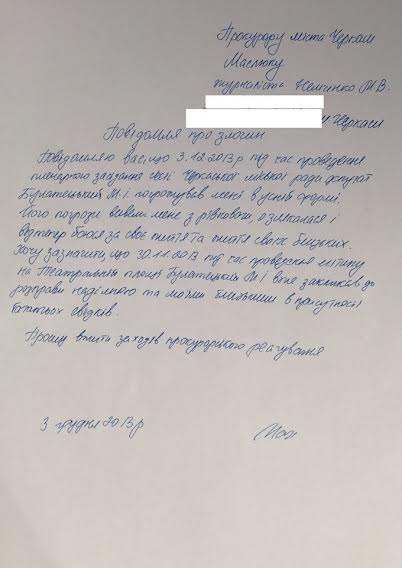 Прокурору міста Черкаси
Маслюку
журналіста Немченко М.В.
м Черкаси
Повідомлення про злочин
Повідомляю вас, що 3.12.2013р під час проведення
пленарного засідання сесії Черкаської міської ради депутат
Булатецький М.І. погрожував мені в усній формі
Його погрози вивели мене з рівноваги, я злякалася і
відтепер боюся за своє життя та життя своїх близьких.
Хочу зазначити, що 30.11.2013р під час проведення мітингу
на Театральній площі Булатецький М.І. вже закликав до
розправи наді мною та моїми близькими в присутності
багатьох свідків.
Прошу вжити заходів прокурорського реагування
3 грудня 2013р